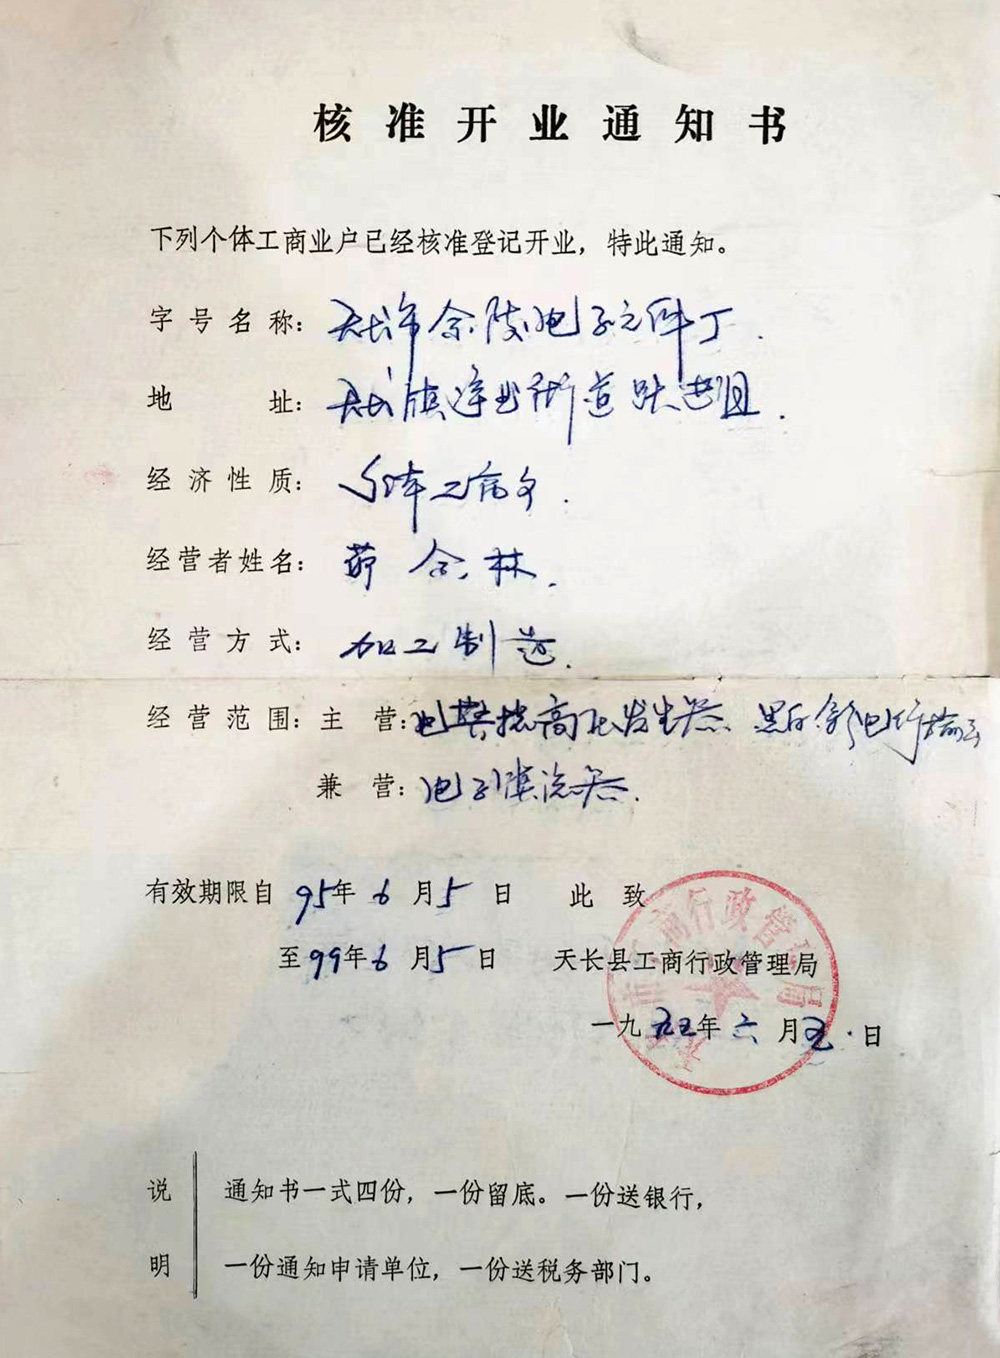 核准开业通知书
下列个体工商业户已经核准登记开业，特此通知。
字号名称：天长市余陵电子元件厂.
地 址：天长镇连西街道跃进组.
经济性质：个体工商户.
经营者姓名：茆合林.
经营方式：加工制造.
经营范围：主 营：电 高压发生器、黑白
兼 营：电子 器.
有效期限自 95年6月5日 此 致
至99年6月5日 天长县工商行政管理局
一九九五年六月五日
工商行政管理局
说明
通知书一式四份，一份留底。一份送银行，
一份通知申请单位，一份送税务部门。